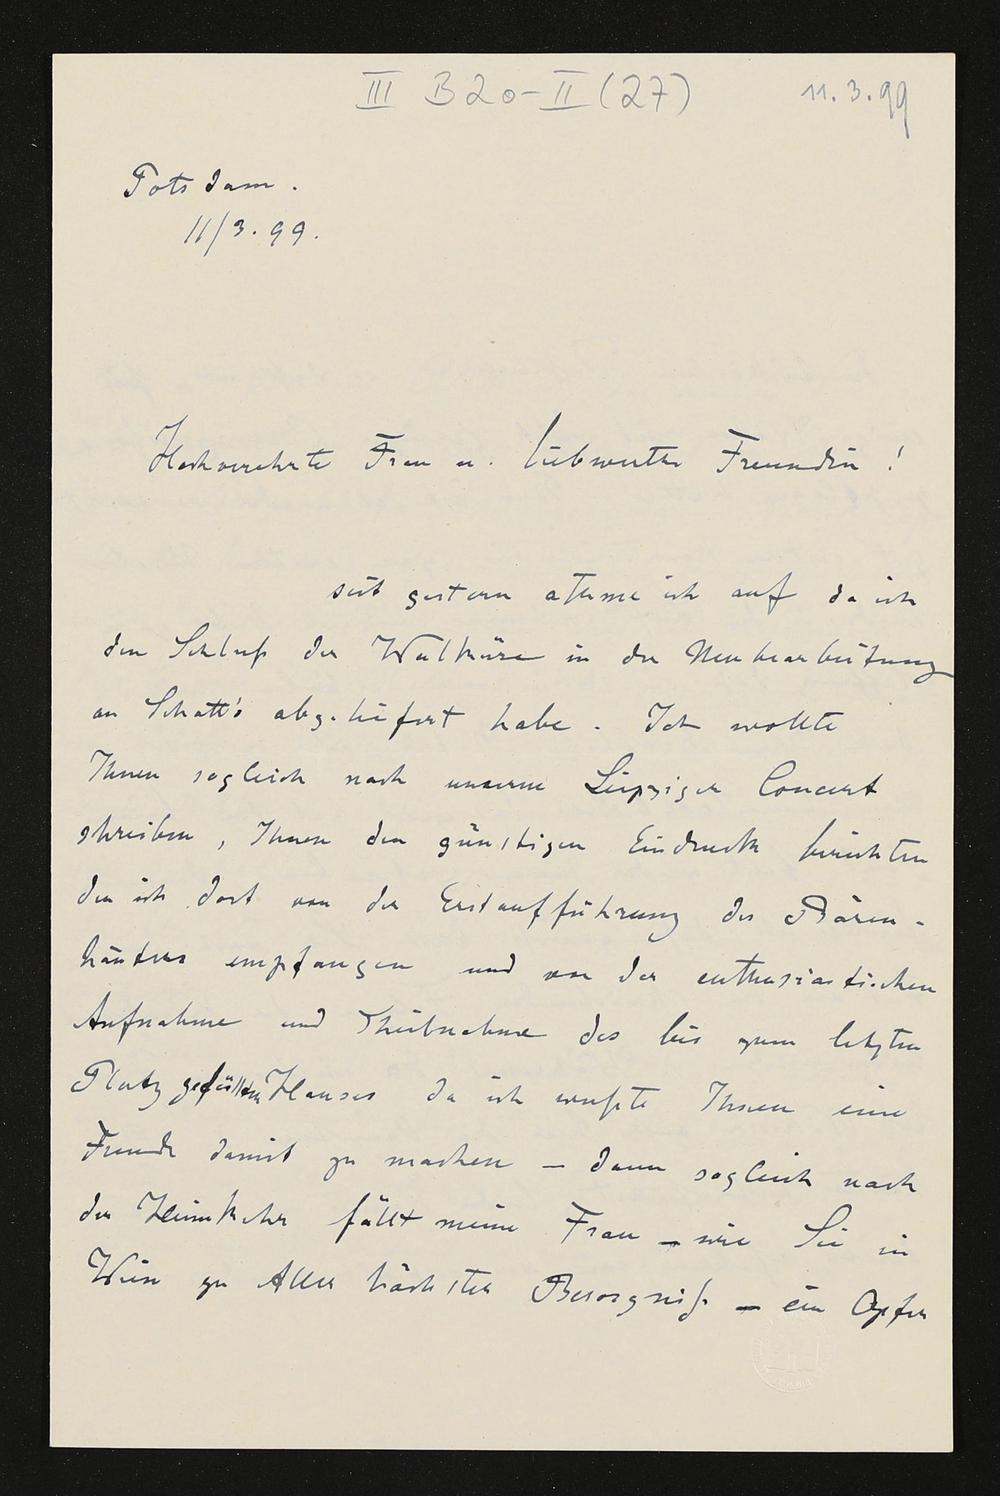 III B20-II (27) 11.3.99
Potsdam.
11/3.99.
Hochverehrte Frau u. liebwerthe Freundin!
seit gestern athme ich auf da ich
den Schluß der Walküre in der Neubearbeitung
an Schott's abgeliefert habe. Ich wollte
Ihnen sogleich nach unserm Leipziger Concert
schreiben, Ihnen den günstigen Eindruck berichten
den ich dort von der Erstaufführung des Bären-
häuters empfangen und von der enthusiastischen
Aufnahme und Theilnahme des bis zum letzten
Platz gefüllten Hauses da ich wußte Ihnen eine
Freude damit zu machen – dann sogleich nach
der Heimkehr fällt meine Frau – wie Sie in
Wien zu Aller höchster Besorgniß – ein Opfer